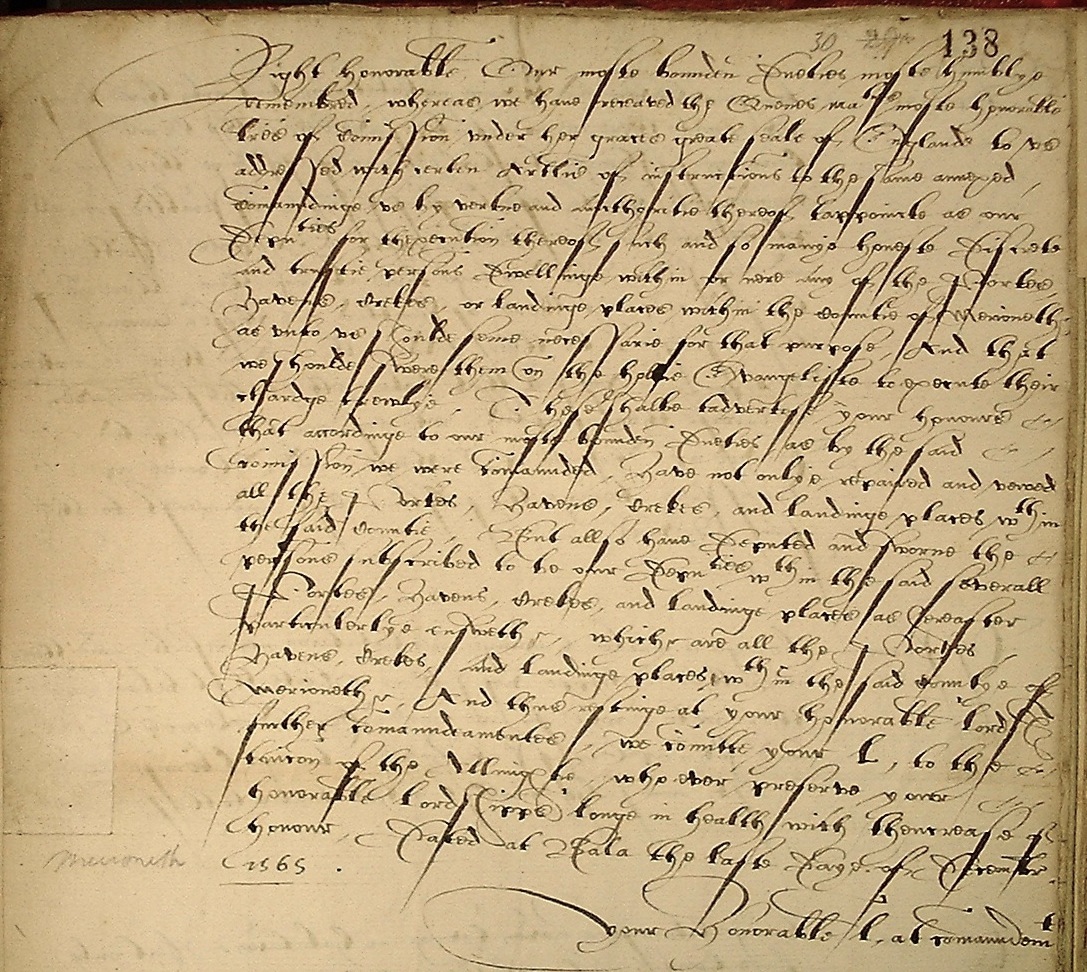 30 138
Right honorable, Our moste bounden Dueties moste humblye
remembred, whereas we have receaved the Quenes Ma^ties moste honorable
lres of Comission under her graces greate seale of Englande to us
addressed with certen Artlis of instructions to the same annexed,
Comaundinge us by vertue and authoritie thereof tappoincte as our
Deputies for thexecution thereof, such and so manye honeste Discrete
and trustie persons Dwellinge within or nere any of the Portes,
Havens, Crekes, or landinge places within the Countie of Merioneth,
as unto us shoulde seme necessarie for that purpose, And that
we shoulde swere them on the holie Evangeliste to execute their
chardge trewlye, These shalbe tadvertise your honours
that accordinge to our moste bounden Dueties as by the said
Comission we were Comaunded, Have not onlye repaired and vewed
all the Portes, Havens, Crekes, and landinge places w^th in
the said Countie, But allso have Deputed and sworne the
persons subscribed to be our Deputies w^th in the said severall
Portes, Havens, Crekes, and landinge places as hereafter
particulerlye ensweth, which are all the Portes
Havens, Crekes, and landinge places w^th in the said Countye of
Merioneth, And thus restinge at your honorable lord
further Comaundamentes, we Comitte your L, to the
tuicon of the Allmightie, who ever preserve your
honorable lordshippes longe in health with thencrease of
honour, Dated at Bala the laste Daye of Decembr
1565.
Merioneth
your Honorable L, at comaundem^t